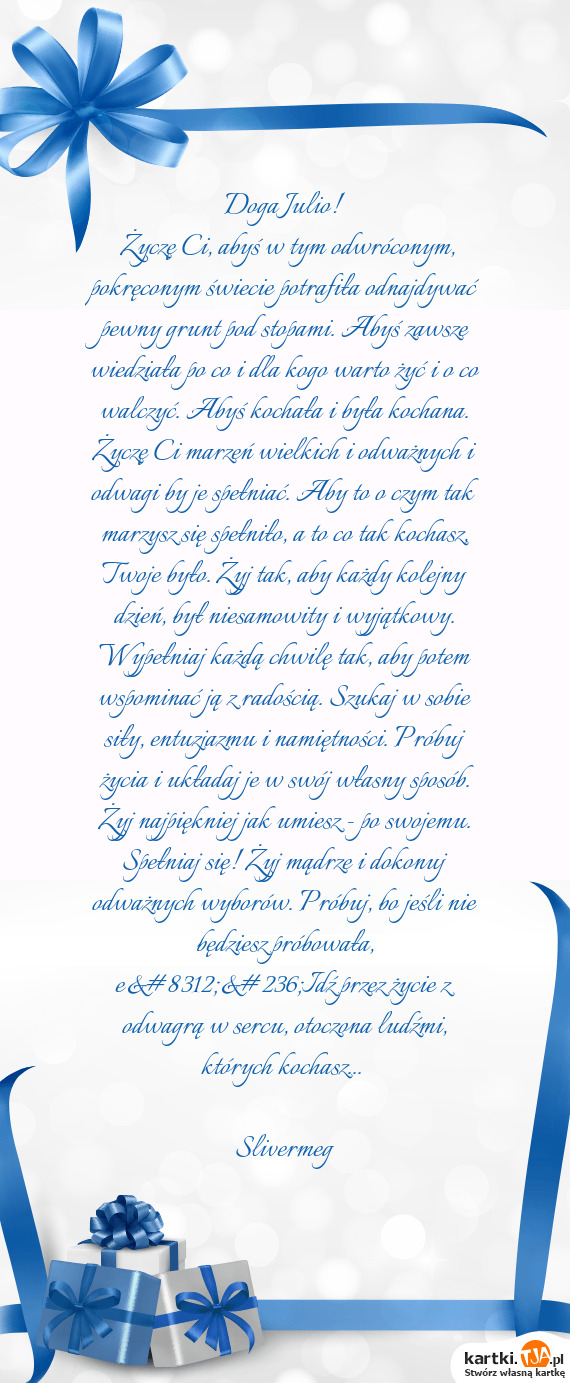 Doga Julio!
Życzę Ci, abyś w tym odwróconym,
pokręconym świecie potrafiła odnajdywać
pewny grunt pod stopami. Abyś zawsze
wiedziała po co i dla kogo warto żyć i o co
walczyć. Abyś kochała i była kochana.
Życzę Ci marzeń wielkich i odważnych i
odwagi by je spełniać. Aby to o czym tak
marzysz się spełniło, a to co tak kochasz,
Twoje było. Żyj tak, aby każdy kolejny
dzień, był niesamowity i wyjątkowy.
Wypełniaj każdą chwilę tak, aby potem
wspominać ją z radością. Szukaj w sobie
siły, entuzjazmu i namiętności. Próbuj
życia i układaj je w swój własny sposób.
Żyj najpiękniej jak umiesz - po swojemu.
Spełniaj się! Żyj mądrze i dokonuj
odważnych wyborów. Próbuj, bo jeśli nie
będziesz próbowała,
e&#8312;&#236;Idź przez życie z
odwagrą w sercu, otoczona ludźmi,
których kochasz...
Slivermeg
kartki.TJA.pl
Stwórz własną kartkę